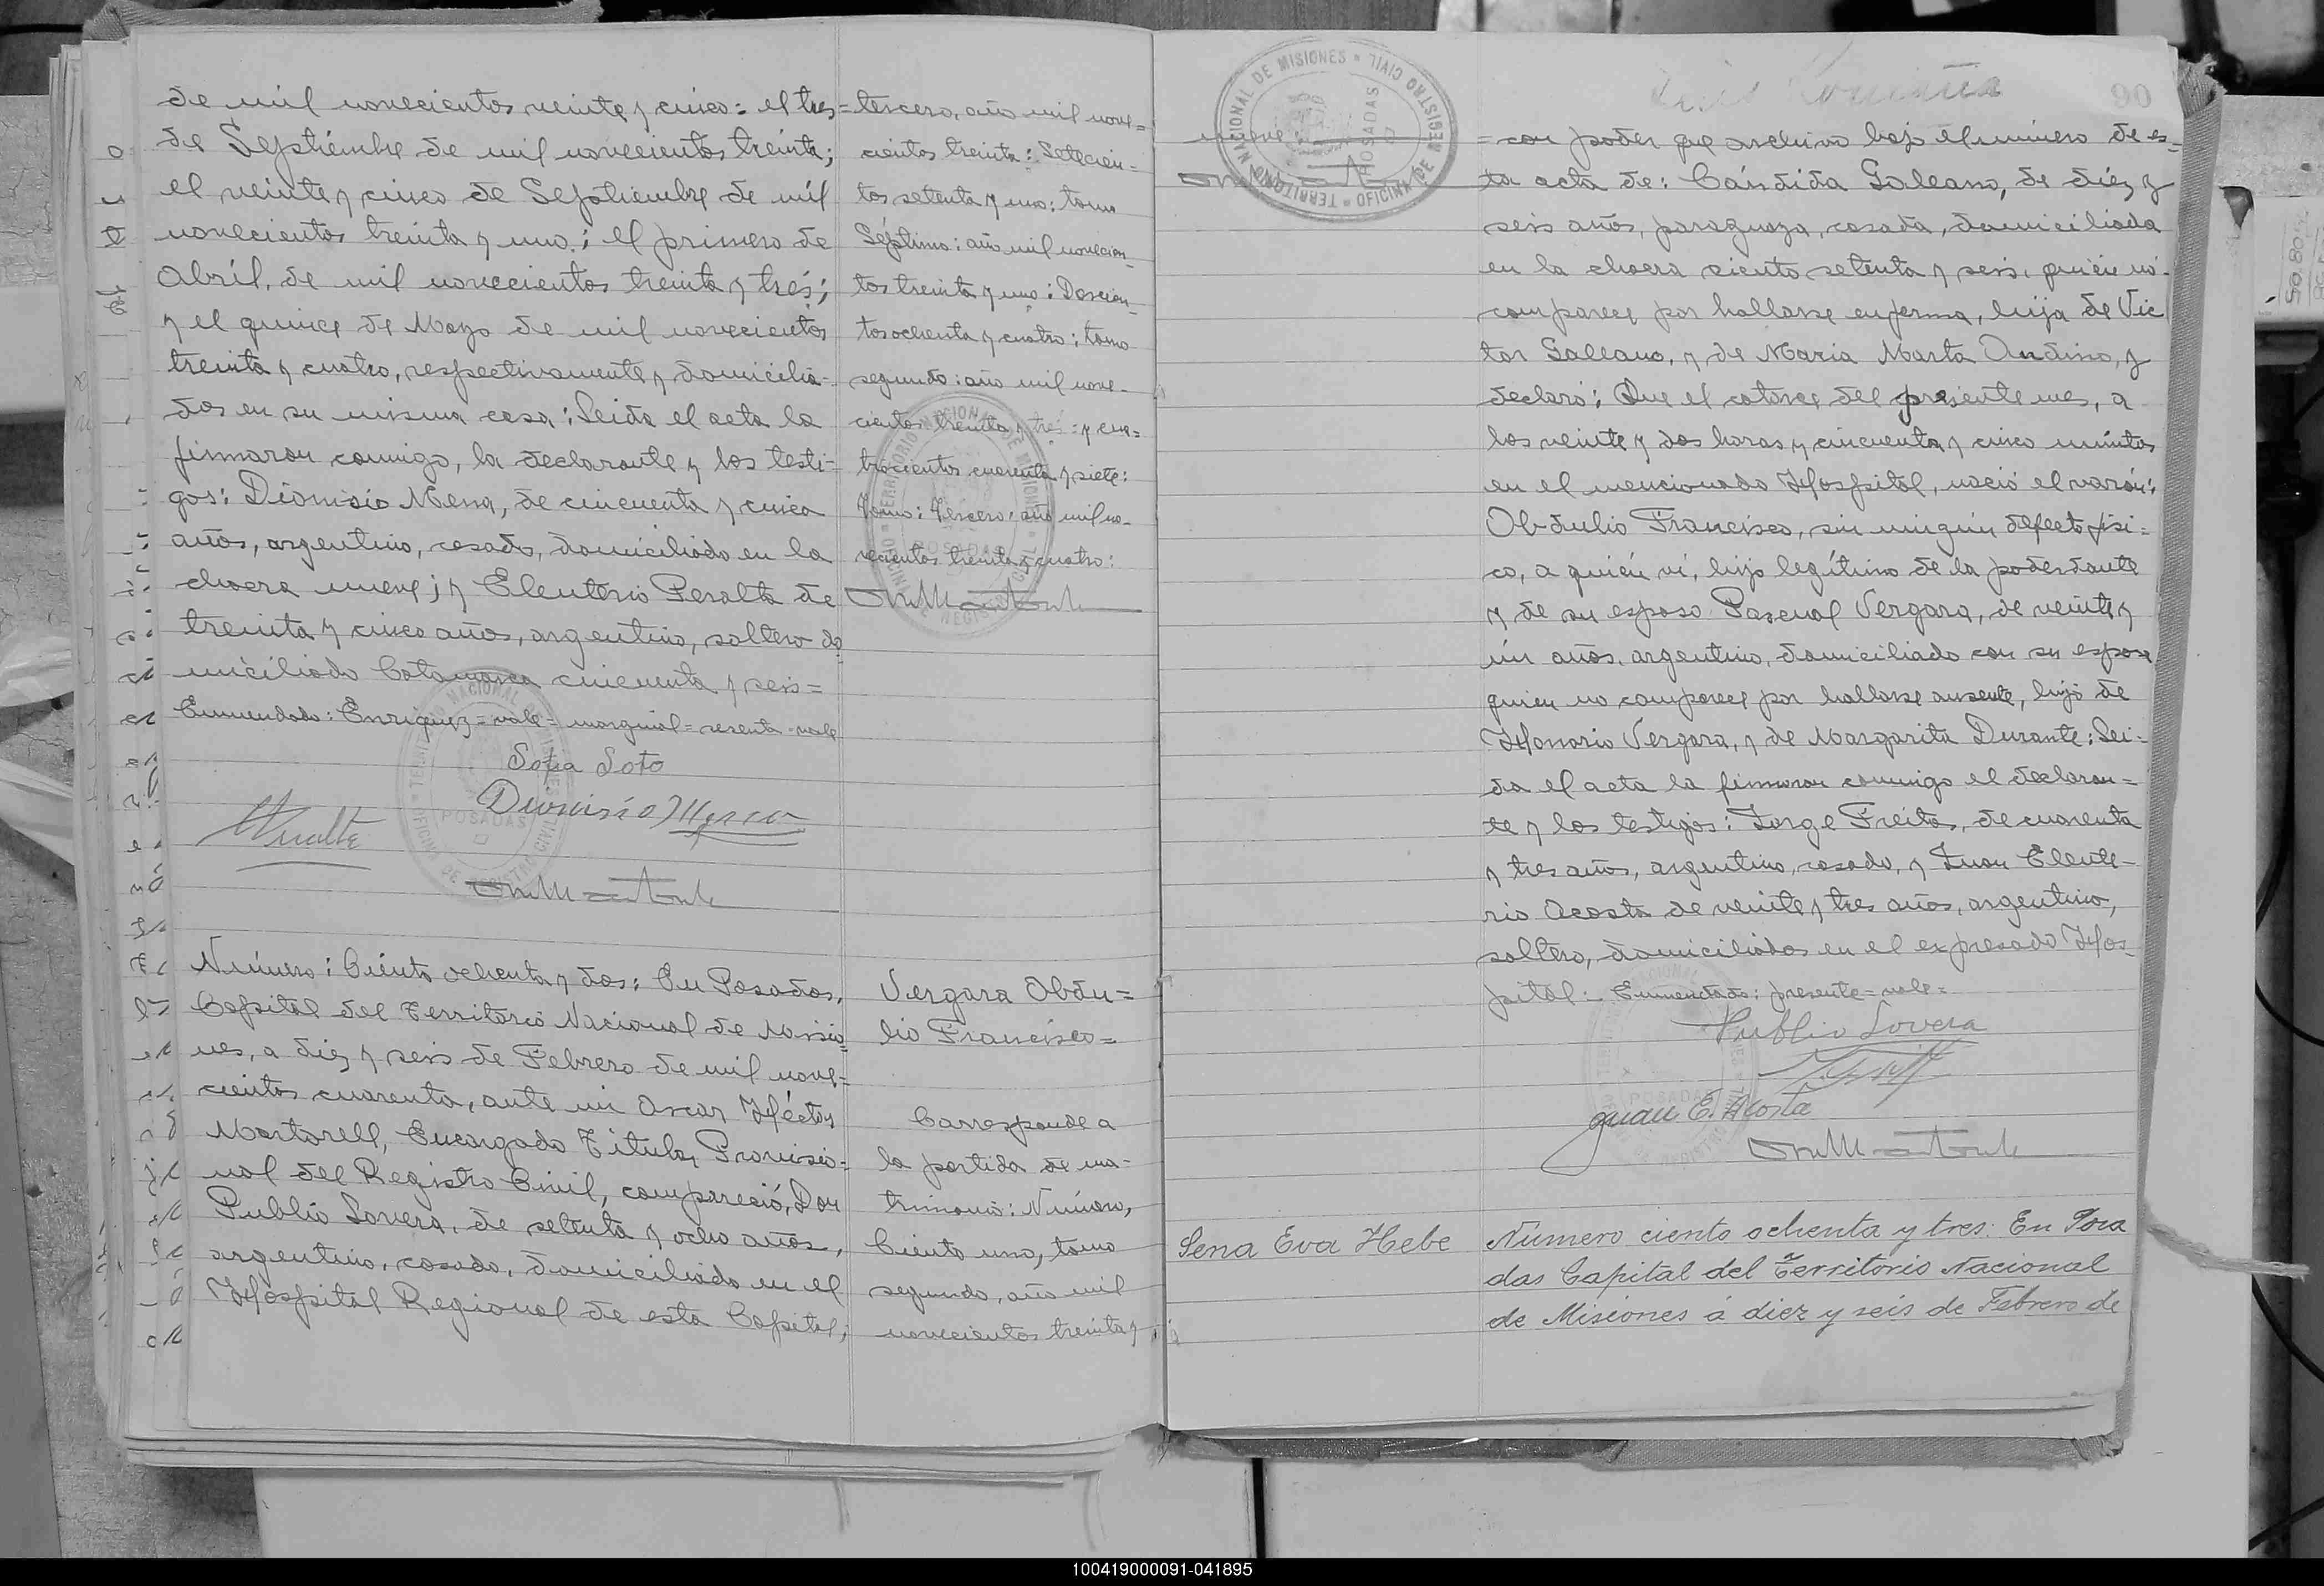 de mil novecientos veinte y cinco: el tres=
de Septiembre de mil novecientos treinta;
el veinte y cinco de Septiembre de mil
novecientos treinta y uno; el primero de
Abríl, de mil novecientos treinta y trés;
y el quince de Mayo de mil novecientos
treinta y cuatro, respectivamente y domicilia=
dos en su misma casa: Leida el acta la
firmaron conmigo, la declarante y los testi=
gos: Dionisio Mena, de cincuenta y cinco
años, argentino, casado, domiciliado en la
chacra nueve; y Eleuterio Peralta de
treinta y cinco años, argentino, soltero do
miciliado Catamarca cincuenta y seis=
Enmendado: Enriquez=vale=marginal=sesenta=vale
Sofia Soto
Dionisio Mena
POSADAS
tercero, año mil nove=
cientos treinta: Setecien=
tos setenta y uno: tomo
Séptimo: año mil novecien=
tos treinta y uno: Doscien=
tos ochenta y cuatro: tomo
segundo: año mil nove=
cientos treinta y tres: y cua=
trocientos cuarenta y siete:
Tomo: Tercero: año mil no=
vecientos treinta y cuatro:
Número: Ciento ochenta y dos: En Posadas,
Capital del Territorio Nacional de Misio=
nes, a diez y seis de Febrero de mil nove=
cientos cuarenta, ante mi Oscar Héctor
Martorell, Encargado Titular Provisio=
nal del Registro Civil, compareció, Don
Publio Lovera, de setenta y ocho años,
argentino, casado, domiciliado en el
Hospital Regional de esta Capital;
Vergara Obdu=
lio Francisco=
Corresponde a
la partida de ma=
trimonio: Número,
Ciento uno, tomo
segundo, año mil
novecientos treinta y
nueve
TERRITORIO NACIONAL DE MISIONES
OFICINA DE REGISTRO CIVIL
POSADAS
90
=con poder que archivo bajo el número de es=
ta acta de: Cándida Galeano, de diéz y
seis años, paraguaya, casada, domiciliada
en la chacra ciento setenta y seis, quién no
comparece por hallarse enferma, hija de Vic
tor Galeano, y de Maria Marta Andino, y
declaró: Que el catorce del presente mes, a
las veinte y dos horas y cincuenta y cinco minutos
en el mencionado Hospital, nació el varón:
Obdulio Francisco, sin ningún defecto físi=
co, a quién ví, hijo legítimo de la poderdante
y de su esposo Pascual Vergara, de veinte y
ún años, argentino, domiciliado con su esposa
quien no comparece por hallarse ausente, hijo de
Honorio Vergara, y de Margarita Durante: Lei=
da el acta la firmaron conmigo el declaran=
te y los testigos: Jorge Freitas, de cuarenta
y tres años, argentino, casado, y Juan Eleute=
rio Acosta de veinte y tres años, argentino,
soltero, domiciliados en el expresado Hos=
pital=Enmendado: presente=vale=
Publio Lovera
Juan E. Acosta
POSADAS
Sena Eva Hebe
Número ciento ochenta y tres: En Posa
das Capital del Territorio Nacional
de Misiones á diez y seis de Febrero de
100419000091-041895